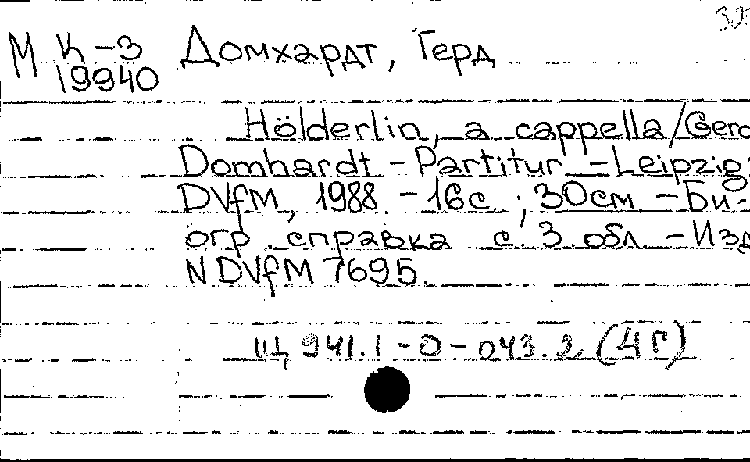 М К-3 Домхардт, Герд
19940
Hölderlin, a cappella/Gerd
Domhardt - Partitur - Leipzig:
DVfM, 1988 - 16с ; 30см - Би-
огр справка с 3 обл - Изд
N DVfM 7695.
Щ 941.1-0-043.2 (4Г)